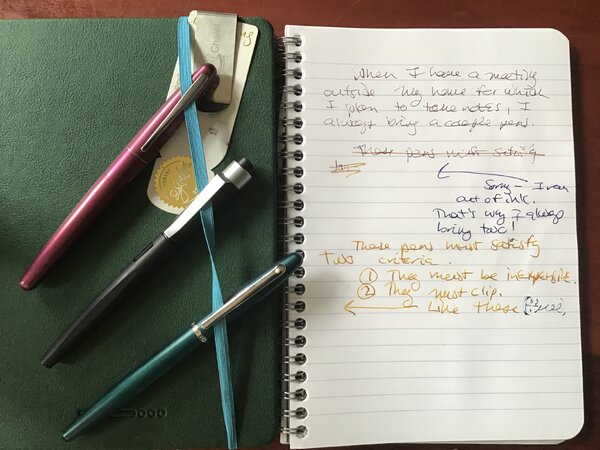 Chalet
When I have a meeting
outside my home for which
I plan to take notes, I
always bring a couple pens.
These pens must satisfy
Sorry - I ran
out of ink.
That's why I always
bring two!
These pens must satisfy
two criteria.
① They must be inexpensive.
② They must clip.
Like these